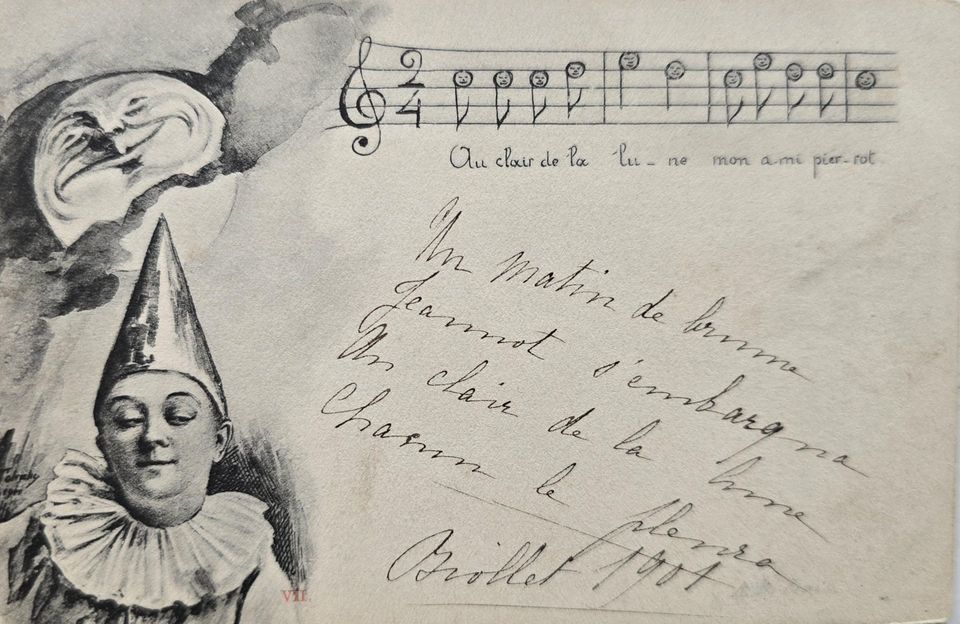 2
4
Au clair de la lu - ne mon a-mi pier-rot.
Un matin de brume
Jeannot s'embarqua
Au clair de la lune
Chacun le pleura
Briollet 1901
VII.